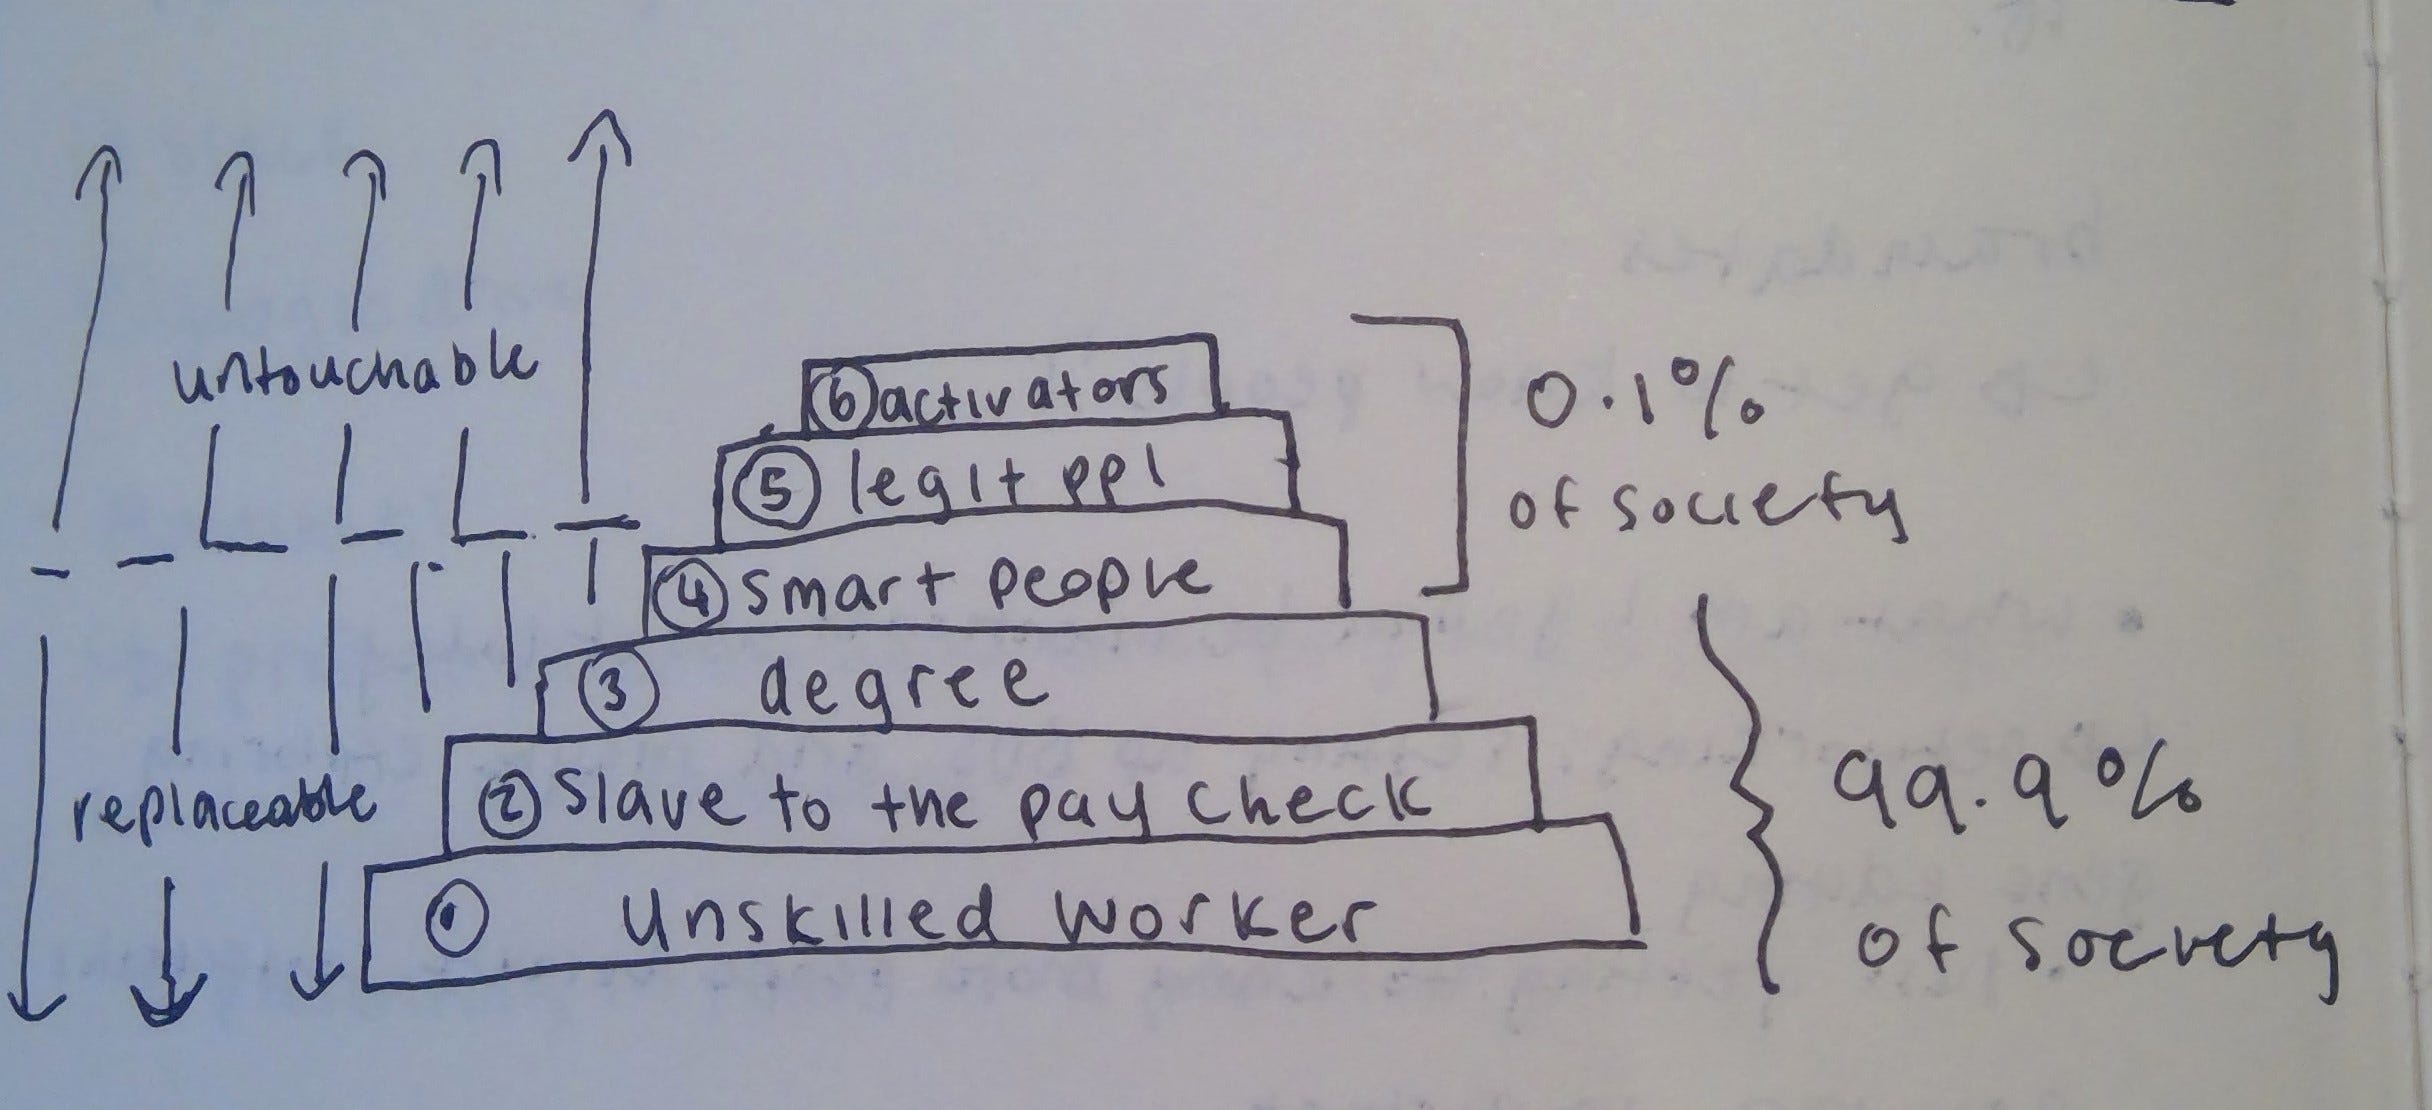 untouchable
⑥ activators
⑤ legit ppl
0.1%
of society
④ smart people
③ degree
② slave to the pay check
replaceable
① unskilled worker
99.9%
of society